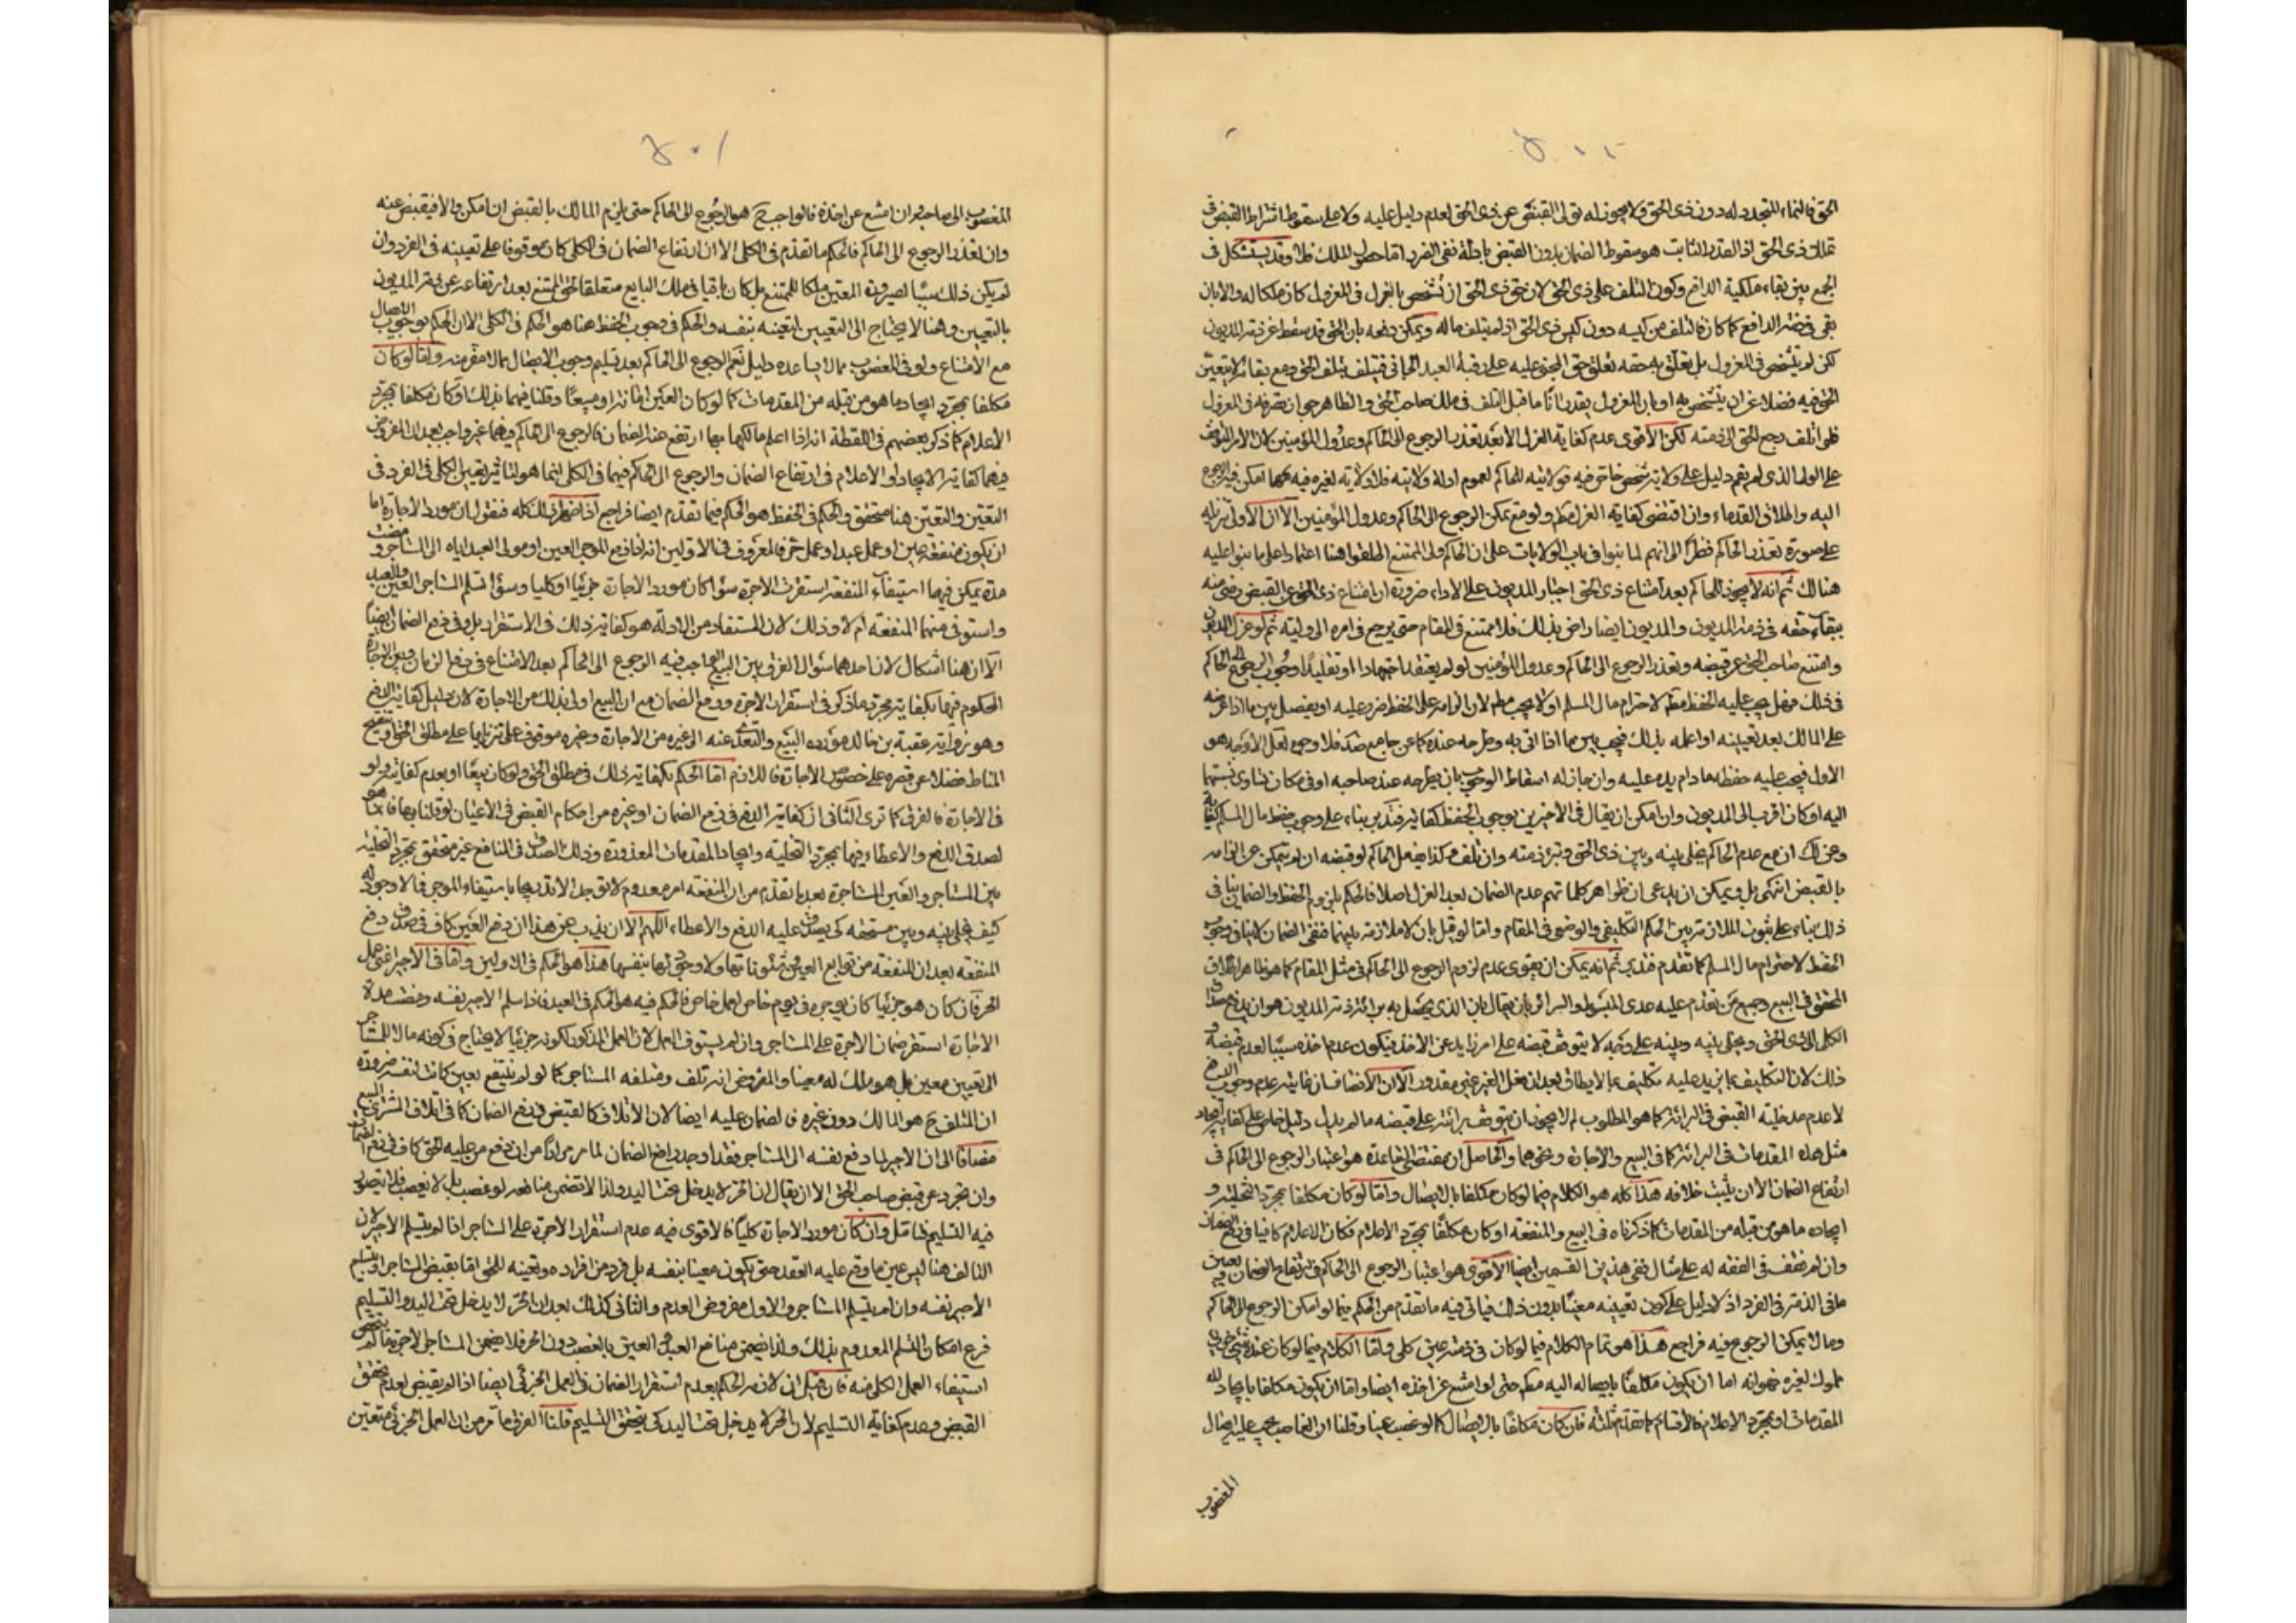 ٤٠٠
الحق فالنماء المتجدد له دون ذى الحق ولا يجوز له تولى القبض عن ذى الحق لعدم دليل عليه ولا على سقوط اشتراط القبض فى
تملك ذى الحق اذ القدر الثابت هو سقوط الضمان بدون القبض بادلة نفى الضرر اما حصول الملك فلا وقد يستشكل فى
الجمع بين بقاء ملكية الدافع وكون التلف على ذى الحق لان حق ذى الحق ان تشخص بالعزل فى المعزول كان ملكا له والا بان
بقى فى ذمة الدافع كما كان فالتلف من كيسه دون كيس ذى الحق اذ لم يتلف ماله ويمكن دفعه بان الحق قد سقط عن ذمة المديون
لكن لم يتشخص فى المعزول بل تعلق به حقه تعلق حق المجنى عليه على رقبة العبد الجانى فيتلف بتلف الحق ومع بقائه لا يتعين
الحق فيه فضلا عن ان يتشخص به او بان المعزول يقدر انا ما قبل التلف فى ملك صاحب الحق والظاهر جواز تصرفه فى المعزول
فلو اتلف رجع الحق الى ذمته لكن الاقوى عدم كفاية العزل الا بعد تعذر الرجوع الى الحاكم وعدول المؤمنين لان الامر
على الولى الذى لم يقم دليل على ولاية شخص خاص فيه فولايته للحاكم لعموم ادلة ولايته فلا ولاية لغيره فيه مهما امكن فيه الرجوع
اليه واطلاق القدماء وان اقتضى كفاية العزل مطم ولو مع تمكن الرجوع الى الحاكم وعدول المؤمنين الا ان الاولى تنزيله
على صورة تعذر الحاكم نظرا الى انهم لما بنوا فى باب الولايات على ان الحاكم ولى الممتنع اطلقوا هنا اعتمادا على ما بنوا عليه
هنالك ثم انه لا يجوز للحاكم بعد امتناع ذى الحق اجبار المديون على الاداء ضرورة ان امتناع ذى الحق عن القبض رضى منه
ببقاء حقه فى ذمة المديون والمديون ايضا راض بذلك فلا ممتنع فى المقام حتى يرجع فى امره الى وليه ثم لو عزل المديون
وامتنع صاحب الحق عن قبضه وتعذر الرجوع الى الحاكم وعدول المؤمنين او لم يعتقد اجتهادا او تقليدا وجوب الرجوع الى الحاكم
فى ذلك فهل يجب عليه الحفظ مطم لاحترام مال المسلم او لا يجب مطم لان الزامه على الحفظ ضرر عليه او يفصل بين ما اذا عرضه
على المالك بعد تعيينه او اعلمه بذلك فيجب وبين ما اذا اتى به وطرحه عنده كما عن جامع صد فلا وجوه لعل الاوجه هو
الاول فيجب عليه حفظه ما دام يده عليه وان جاز له اسقاط الوجوب بان يطرحه عند صاحبه او فى مكان تساوى نسبتهما
اليه او كان اقرب الى المديون وان امكن ان يقال فى الاخيرين بوجوب الحفظ كفاية فتدبر بناء على وجوب حفظ مال المسلم كفاية
وعن لك ان مع عدم الحاكم يخلى بينه وبين ذى الحق وتبرء ذمته وان تلف وكذا يفعل الحاكم لو قبضه ان لم يتمكن عن الزامه
بالقبض انتهى بل ويمكن ان يدعى ان ظواهر كلماتهم عدم الضمان بعد العزل اصلا فالحكم بلزوم الحفظ والضمان ينافى
ذلك بناء على ثبوت الملازمة بين الحكم التكليفى والوضعى فى المقام واما لو قيل بان لا ملازمة بينهما فنفى الضمان لا ينافى وجوب
الحفظ لاحترام مال المسلم كما تقدم فتدبر ثم انه يمكن ان يقوى عدم لزوم الرجوع الى الحاكم فى مثل المقام كما هو ظاهر اطلاق
المحقق فى البيع وجميع من تقدم عليه عدى المبسوط والسرائر بان يقال بان الذى يحصل به برائة ذمة المديون هو ان يدفع
الكلى الى ذى الحق ويخلى بينه وبينه على وجه لا يتوقف قبضه على امر زايد عن الاخذ فيكون عدم اخذه سببا لعدم قبضه و
ذلك لان التكليف بما يزيد عليه تكليف بما لا يطاق بعد ان فعل الغير غير مقدور الا ان الانصاف ان غايته عدم وجوب الدفع
لا عدم مدخلية القبض فى البرائة كما هو المطلوب لم لا يجوز ان يتوقف برائته على قبضه ما لم يدل دليل خاص على كفاية ايجاد
مثل هذه المقدمات فى البرائة كما فى البيع والاجارة ونحوهما والحاصل ان مقتضى القاعدة هو اعتبار الرجوع الى الحاكم فى
ارتفاع الضمان الا ان يثبت خلافه هذا كله هو الكلام فيما لو كان مكلفا بالايصال واما لو كان مكلفا بمجرد التخلية و
ايجاد ما هو من قبله من المقدمات كما ذكرناه فى البيع والمنفعة او كان مكلفا بمجرد الاعلام فكان الاعلام كافيا فى رفع الضمان
وان لم نقف فى الفقه له على مثال ففى هذين القسمين ايضا الاقوى هو اعتبار الرجوع الى الحاكم فى ارتفاع الضمان
ما فى الذمة فى الفرد اذ لا دليل على كون تعيينه معينا بدون ذلك فياتى فيه ما تقدم من الحكم فيما لو امكن الرجوع الى الحاكم
وما لا يمكن الرجوع فيه فراجع هذا هو تمام الكلام فيما لو كان فى ذمته عين كلى واما الكلام فيما لو كان عنده شئ جزئى
مملوك لغيره فهو انه اما ان يكون مكلفا بايصاله اليه مطم حتى لو امتنع عن اخذه ايضا واما ان يكون مكلفا بايجاد
المقدمات او بمجرد الاعلام فالاقسام كما تقدم ثلثة فان كان مكلفا بالايصال كما لو غصب عينا وقلنا ان الغاصب يجب عليه ايصال
المغصوب
٤٠١
المغصوب الى صاحبه وان امتنع عن اخذه فالواجب ح هو الرجوع الى الحاكم حتى يلزم المالك بالقبض ان امكن والا فيقبض عنه
وان تعذر الرجوع الى الحاكم فالحكم ما تقدم فى الكلى الا ان ارتفاع الضمان فى الكلى كان موقوفا على تعيينه فى الفرد وان
لم يكن ذلك سببا لصيرورة المعين ملكا للممتنع بل كان باقيا فى ملك البايع متعلقا لحق الممتنع بعد ارتفاعه عن ذمة المديون
بالتعيين وهنا لا يحتاج الى التعيين لتعينه بنفسه والحكم فى وجوب الحفظ هنا هو الحكم فى الكلى الا ان الحكم بوجوب الايصال
مع الامتناع ولو فى المغصوب مما لا يساعده دليل نعم الرجوع الى الحاكم بعد تسليم وجوب الايصال مما لا مفر منه واما لو كان
مكلفا بمجرد ايجاد ما هو من قبله من المقدمات كما لو كان العين امانة او مبيعا وقلنا فيهما بذلك او كان مكلفا بمجرد
الاعلام كما ذكر بعضهم فى اللقطة انه اذا اعلم مالكها بها ارتفع عنه الضمان فالرجوع الى الحاكم فيهما غير واجب بعد ان المفروض
فيهما كفاية الايجاد او الاعلام فى ارتفاع الضمان والرجوع الى الحاكم فيهما فى الكلى انما هو لتاثير تعيين الكلى فى الفرد فى
التعين والتعين هنا متحقق والحكم فى الحفظ هو الحكم فيما تقدم ايضا فراجع اذا ظهر ذلك كله فنقول ان مورد الاجارة اما
ان يكون منفعة عين او عمل عبد او عمل حر فالمعروف فى الاولين انه اذا دفع الموجر العين او مولى العبد اياه الى المستاجر ومضت
مدة يمكن فيها استيفاء المنفعة استقرت الاجرة سواء كان مورد الاجارة جزئيا او كليا وسواء تسلم المستاجر العين والعبد
واستوفى منهما المنفعة ام لا وذلك لان المستفاد من الادلة هو كفاية ذلك فى الاستقرار بل وفى رفع الضمان ايضا
الا ان هنا اشكال لان احدهما سؤال الفرق بين البيع الواجب فيه الرجوع الى الحاكم بعد الامتناع فى رفع الضمان وبين الاجارة
المحكوم فيها بكفاية مجرد ما ذكر فى استقرار الاجرة ورفع الضمان مع ان البيع اولى بذلك من الاجارة لان دليل كفاية الدفع
وهو رواية عقبة بن خالد مورده البيع والتعدى عنه الى غيره من الاجارة وغيره موقوف على تنزيلها على مطلق الحق او تنقيح
المناط فضلا عن قصره على خصوص الاجارة فاللازم اما الحكم بكفاية ذلك فى مطلق الحق ولو كان بيعا او بعدم كفايته ولو
فى الاجارة فالفرق كما ترى الثانى ان كفاية الدفع فى رفع الضمان او غيره من احكام القبض فى الاعيان لو قلنا بها فانما هو
لصدق الدفع والاعطاء فيها بمجرد التخلية وايجاد المقدمات المقدورة وذلك الصدق فى المنافع غير متحقق بمجرد التخلية
بين المستاجر والعين المستاجرة بعد ما تقدم من ان المنفعة امر معدوم لا توجد الا تدريجا باستيفاء الموجر فما لا وجود له
كيف يخلى بينه وبين مستحقه كى يصدق عليه الدفع والاعطاء اللهم الا ان يذب عن هذا ان دفع العين كاف فى صدق دفع
المنفعة بعد ان المنفعة من توابع العين وشئوناتها ولا وجود لها بنفسها هذا هو الحكم فى الاولين واما فى الاخير اعنى عمل
الحر فان كان هو جزئيا كان يوجره فى يوم خاص لعمل خاص فالحكم فيه هو الحكم فى العبد فاذا سلم الاجير نفسه ومضت مدة
الاجارة استقر ضمان الاجرة على المستاجر وان لم يستوف العمل لان العمل المذكور لكونه جزئيا لا يحتاج فى كونه مالا للمستاجر
الى تعيين معين بل هو ملك له معينا والمفروض انه تلف ومتلفه المستاجر كما لو لم ينتفع بعين كانت لنفسه ضرورة
ان المتلف ح هو المالك دون غيره فالضمان عليه ايضا لان الاتلاف كالقبض فى رفع الضمان كما فى اتلاف المشترى المبيع
مضافا الى ان الاجير لما دفع نفسه الى المستاجر فقد اوجد رافع الضمان لما مر مرارا من ان دفع من عليه الحق كاف فى رفع الضمان
وان تجرد عن قبض صاحب الحق الا ان يقال ان الحر لا يدخل تحت اليد ولذا لا تضمن منافعه لو غصب بل لا يغصب فلا يتصور
فيه التسليم فتامل وان كان مورد الاجارة كليا فالاقوى فيه عدم استقرار الاجرة على المستاجر اذا لم يتسلم الاجير لان
التالف هنا ليس عين ما وقع عليه العقد حتى يكون معينا بنفسه بل فرد من افراده وتعينه للحق اما بقبض المستاجر او بتسليم
الاجير نفسه وان لم يتسلم المستاجر والاول مفروض العدم والثانى كذلك بعد ان الحر لا يدخل تحت اليد والتسليم
فرع امكان التسلم المعدوم بذلك ولذا يضمن منافع العبد والعين بالغصب دون الحر فلا يضمن المستاجر الاجرة ما لم
استيفاء العمل الكلى منه فان قيل ان لازمه الحكم بعدم استقرار الضمان فى العمل الجزئى ايضا اذا لم يقبض لعدم تحقق
القبض وعدم كفاية التسليم لان الحر لا يدخل تحت اليد كى يتحقق التسليم قلنا الفرق ما مر من ان العمل الجزئى متعين